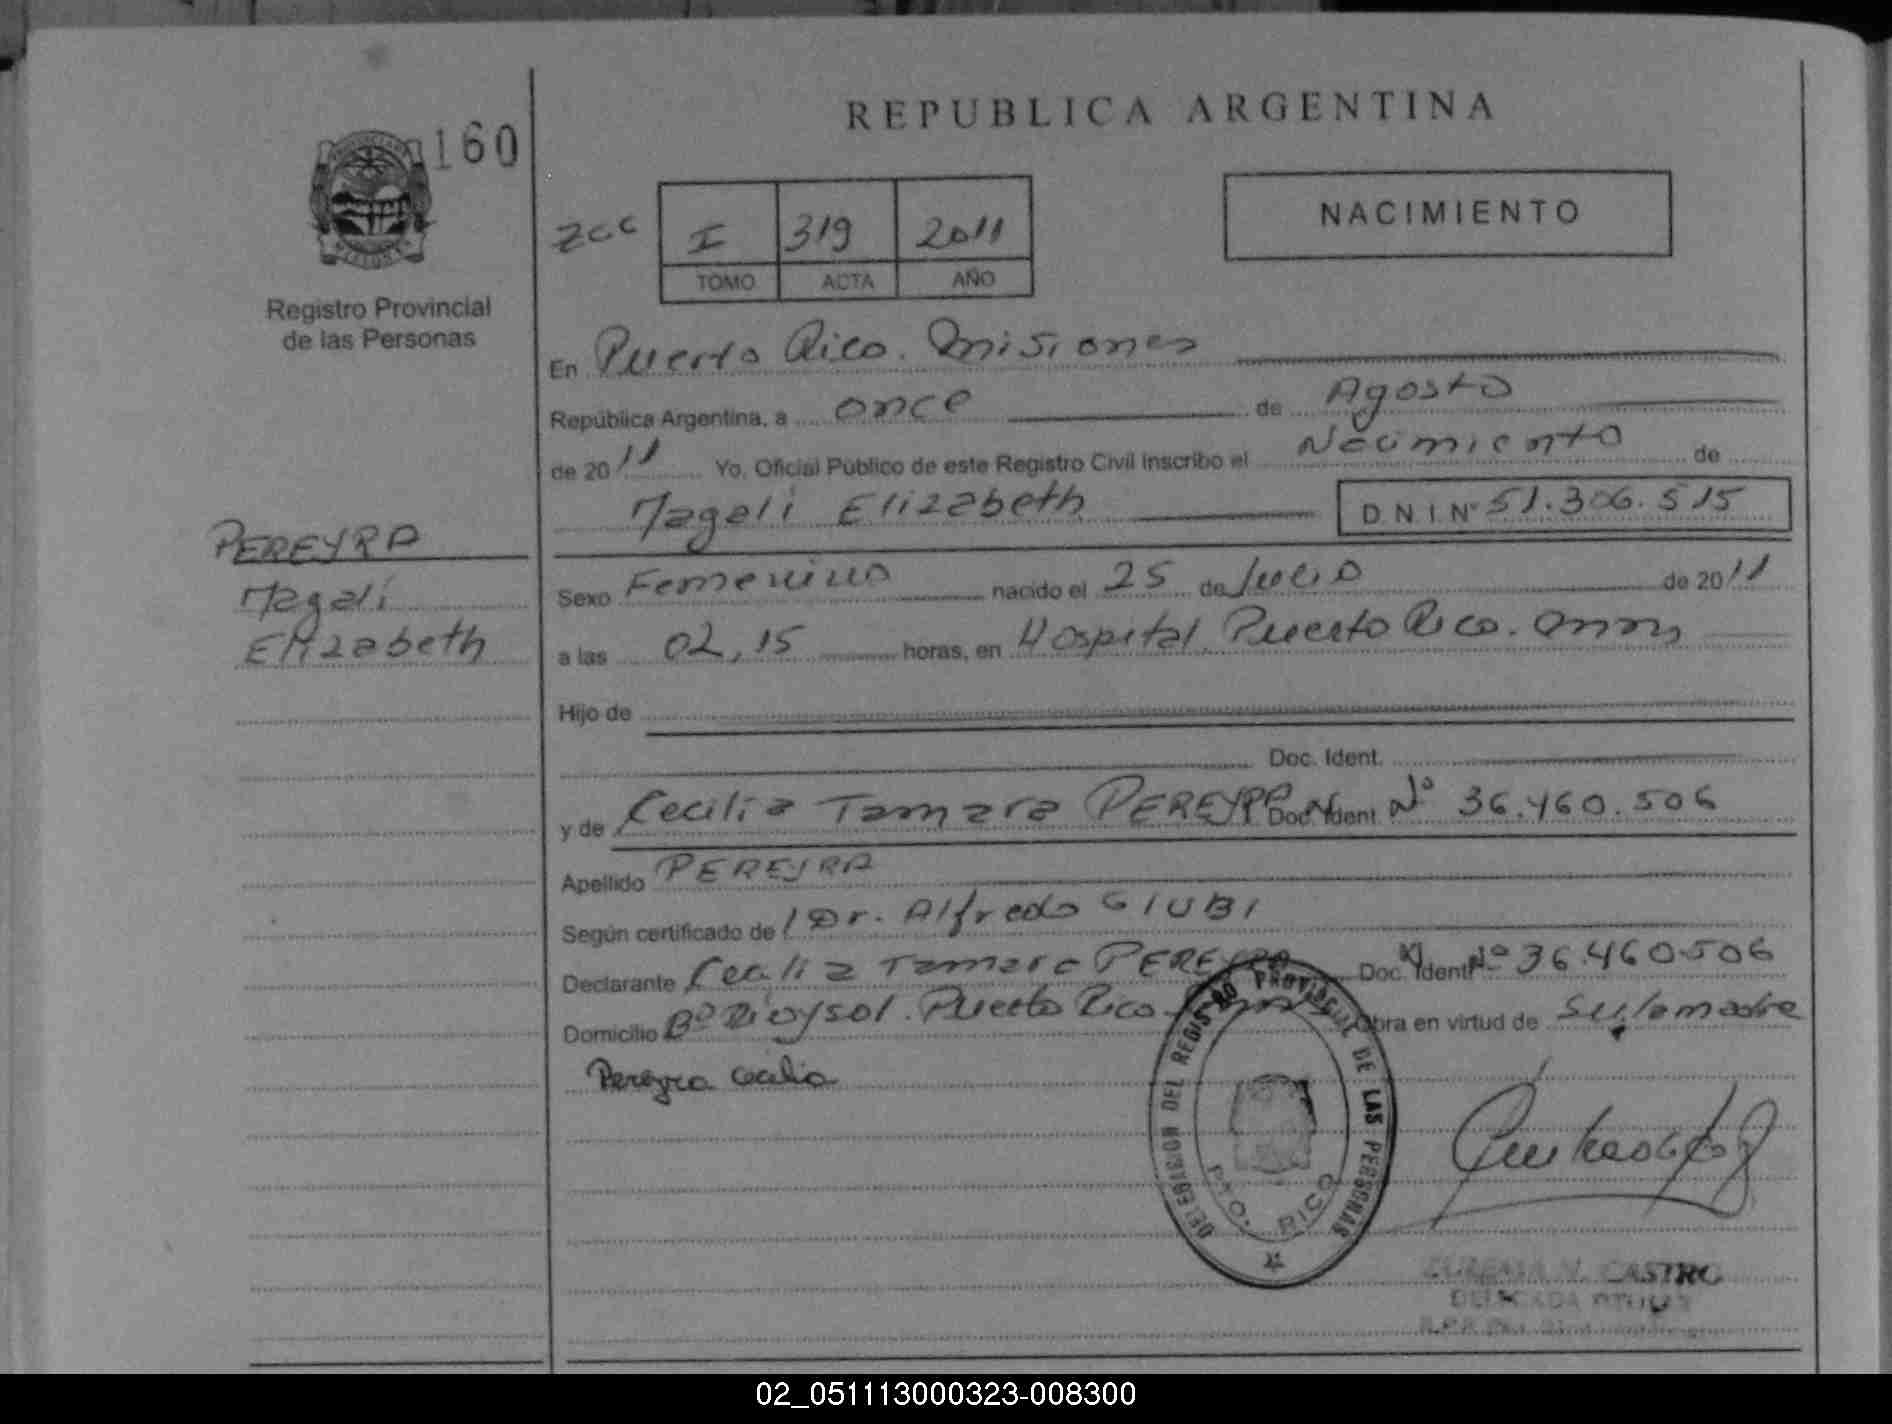 REPUBLICA ARGENTINA
160
NACIMIENTO
zcc I 319 2011
TOMO ACTA AÑO
Registro Provincial
de las Personas
En Puerto Rico. Misiones
República Argentina, a once de Agosto
de 2011 Yo, Oficial Público de este Registro Civil Inscribo el Nacimiento de
Magali Elizabeth D.N.I.Nº 51.306.515
PEREYRA
Magali
Elizabeth
Sexo Femenino nacido el 25 de Julio de 2011
a las 02,15 horas, en Hospital Puerto Rico. Mnes
Hijo de
Doc. Ident.
y de Cecilia Tamara PEREYRA Doc. Ident. Nº 36.460.506
Apellido PEREYRA
Según certificado de Dr. Alfredo GIUBI
Declarante Cecilia Tamara PEREYRA Doc. Ident. Nº 36.460.506
Domicilio Bº Rioysol. Puerto Rico. Obra en virtud de Ser la madre
Pereyra Cecilia
DELEGACION DEL REGISTRO PROVINCIAL DE LAS PERSONAS
PTO. RICO
CASTRO
DELEGADA TITULAR
02_051113000323-008300